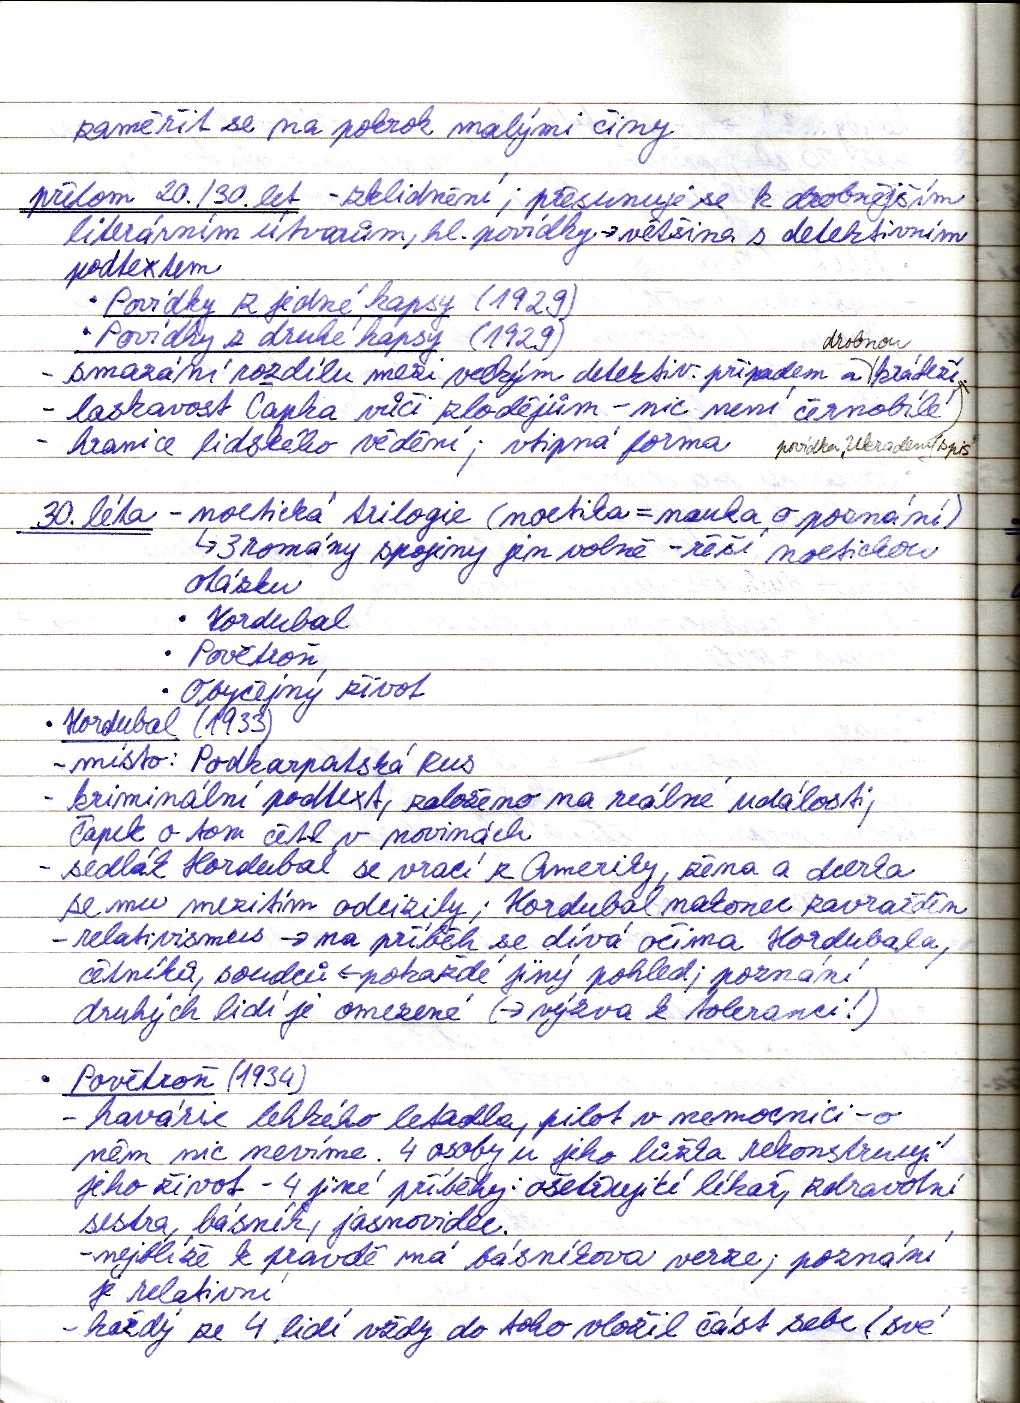 zaměřit se na pokrok malými činy
přelom 20./30. let - zklidnění; přesunuje se k drobnějším
literárním útvarům, hl. povídky → většina s detektivním
podtextem
• Povídky z jedné kapsy (1929)
• Povídky z druhé kapsy (1929)
drobnou
- smazání rozdílu mezi velkým detektiv. případem a krádeží
- laskavost Čapka vůči zlodějům - nic není černobílé
- hranice lidského vědění; vtipná forma povídka „Ukradený spis“
30. léta - noetická trilogie (noetika = nauka o poznání)
↳ 3 romány spojeny jen volně - řeší noetickou
otázku
• Hordubal
• Povětroň
• Obyčejný život
• Hordubal (1933)
- místo: Podkarpatská Rus
- kriminální podtext, založeno na reálné události,
Čapek o tom četl v novinách
- sedlák Hordubal se vrací z Ameriky, žena a dcerka
se mu mezitím odcizily; Hordubal nakonec zavražděn
- relativismus → na příběh se dívá očima Hordubala,
četníků, soudců ← pokaždé jiný pohled; poznání
druhých lidí je omezené (→ výzva k toleranci!)
• Povětroň (1934)
- havárie lehkého letadla, pilot v nemocnici - o
něm nic nevíme. 4 osoby u jeho lůžka rekonstruují
jeho život - 4 jiné příběhy: ošetřující lékař, zdravotní
sestra, básník, jasnovidec.
- nejblíže k pravdě má básníkova verze; poznání
je relativní
- každý ze 4 lidí vždy do toho vložil část sebe (své